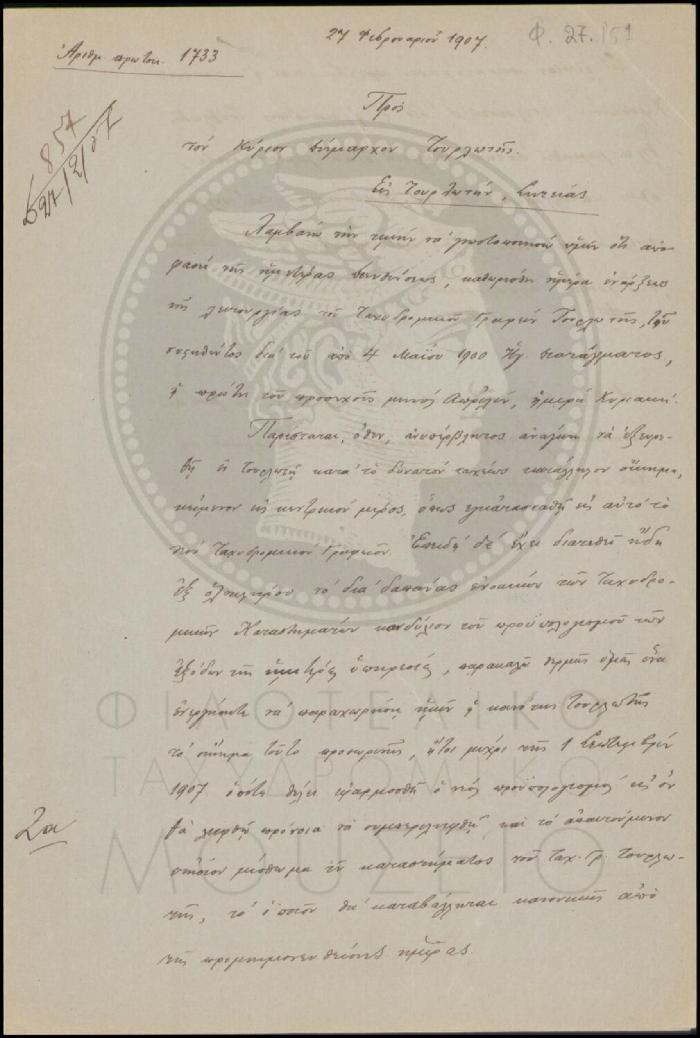 Ἀριθμ πρωτοκ. 1733
27 Φεβρουαρίου 1907.
Φ. 27. 151
857
27/2/07
Προς
τὸν Κύριον Δήμαρχον Τουρλωτῆς.
Εἰς Τουρλωτήν, Σητείας
Λαμβάνω τὴν τιμὴν νὰ γνωστοποιήσω ὑμῖν ὅτι ἀπο-
φάσει τῆς ἡμετέρας Διευθύνσεως, καθωρίσθη ἡμέρα ἐνάρξεως
τῆς λειτουργίας τοῦ Ταχυδρομικοῦ Γραφείου Τουρλωτῆς, τοῦ
συστηθέντος διὰ τοῦ ἀπὸ 4 Μαΐου 1900 Ἡγ. Διατάγματος,
ἡ πρώτη τοῦ προσεχοῦς μηνὸς Ἀπριλίου, ἡμέρα Κυριακή.
Παρίσταται, ὅθεν, ἀνυπέρβλητος ἀνάγκη νὰ ἐξευρε-
θῇ ἐν Τουρλωτῇ κατὰ τὸ δυνατὸν ταχέως κατάλληλον οἴκημα,
κείμενον εἰς κεντρικὸν μέρος, ὅπως ἐγκατασταθῇ εἰς αὐτὸ τὸ
νέον Ταχυδρομικὸν Γραφεῖον. Ἐπειδὴ δὲ ἔχει διατεθῆ ἤδη
ἐξ ὁλοκλήρου τὸ διὰ δαπάνας ἐνοικίων τῶν Ταχυδρο-
μικῶν Καταστημάτων κονδύλιον τοῦ προϋπολογισμοῦ τῶν
ἐξόδων τῆς ἡμετέρας ὑπηρεσίας, παρακαλῶ θερμῶς ὑμᾶς ἵνα
ἐνεργήσητε νὰ παραχωρήσῃ ἡμῖν ἡ κοινότης Τουρλωτῆς
τὸ οἴκημα τοῦτο προσωρινῶς, ἤτοι μέχρι τῆς 1 Σεπτεμβρίου
1907 ὁπότε θέλει ἐφαρμοσθῆ ὁ νέος προϋπολογισμὸς εἰς ὃν
θὰ ληφθῇ πρόνοια νὰ συμπεριληφθῇ καὶ τὸ ἀπαιτούμενον
ἐτήσιον μίσθωμα τοῦ καταστήματος τοῦ Ταχ. Γρ. Τουρλω-
τῆς, τὸ ὁποῖον θὰ καταβάλληται κανονικῶς ἀπὸ
τῆς προμνημονευθείσης ἡμέρας.
ΦΙΛΟΤΕΛΙΚΟ
ΤΑΧΥΔΡΟΜΙΚΟ
ΜΟΥΣΕΙΟ